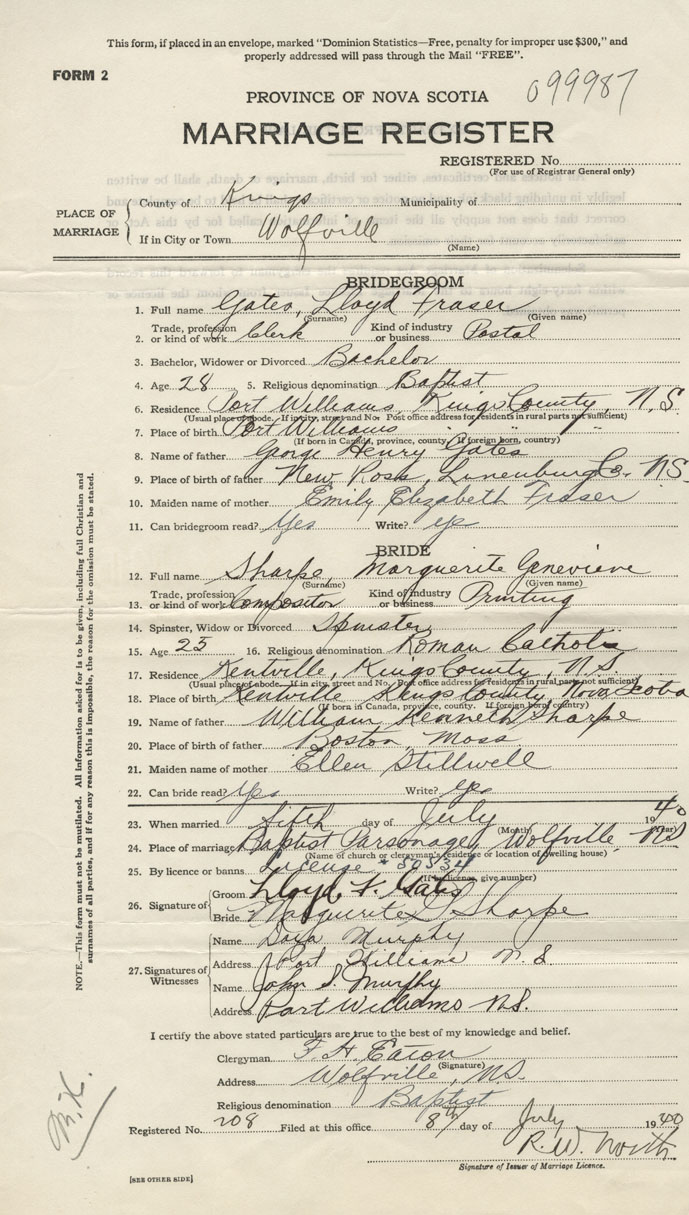 This form, if placed in an envelope, marked "Dominion Statistics—Free, penalty for improper use $300," and
properly addressed will pass through the Mail "FREE".
FORM 2
099987
PROVINCE OF NOVA SCOTIA
MARRIAGE REGISTER
REGISTERED No.
(For use of Registrar General only)
PLACE OF MARRIAGE
County of Kings Municipality of
If in City or Town Wolfville
(Name)
BRIDEGROOM
1. Full name Gates, Lloyd Fraser
(Surname) (Given name)
2. Trade, profession or kind of work Clerk Kind of industry or business Postal
3. Bachelor, Widower or Divorced Bachelor
4. Age 28 5. Religious denomination Baptist
6. Residence Port Williams Kings County, N.S.
(Usual place of abode. If in city, street and No. Post office address for residents in rural parts not sufficient)
7. Place of birth Port Williams " "
(If born in Canada, province, county. If foreign born, country)
8. Name of father George Henry Gates
9. Place of birth of father New Ross, Lunenburg Co. N.S.
10. Maiden name of mother Emily Elizabeth Fraser
11. Can bridegroom read? Yes Write? yes
BRIDE
12. Full name Sharpe, Marguerite Genevieve
(Surname) (Given name)
13. Trade, profession or kind of work Compositor Kind of industry or business Printing
14. Spinster, Widow or Divorced Spinster
15. Age 25 16. Religious denomination Roman Catholic
17. Residence Kentville, Kings County, N.S.
(Usual place of abode. If in city, street and No. Post office address for residents in rural parts not sufficient)
18. Place of birth Kentville Kings County, Nova Scotia
(If born in Canada, province, county. If foreign born, country)
19. Name of father William Kenneth Sharpe
20. Place of birth of father Boston, Mass
21. Maiden name of mother Ellen Stillwell
22. Can bride read? Yes Write? Yes
23. When married fifth day of July 1940
(Month) (Year)
24. Place of marriage Baptist Parsonage, Wolfville NS
(Name of church or clergyman's residence or location of dwelling house)
25. By licence or banns License
(If by licence, give number)
26. Signature of
Groom Lloyd F. Gates
Bride Marguerite G Sharpe
27. Signatures of Witnesses
Name Murphy
Address Port Williams N.S.
Name John S. Murphy
Address Port Williams N.S.
I certify the above stated particulars are true to the best of my knowledge and belief.
Clergyman F. H. Eaton
(Signature)
Address Wolfville, N.S.
Religious denomination Baptist
Registered No. 208 Filed at this office 8th day of July 1940
R. W. North
Signature of Issuer of Marriage Licence.
[SEE OTHER SIDE]
NOTE.—This form must not be mutilated. All information asked for is to be given, including full Christian and
surnames of all parties, and if for any reason this is impossible, the reason for the omission must be stated.
M.K.